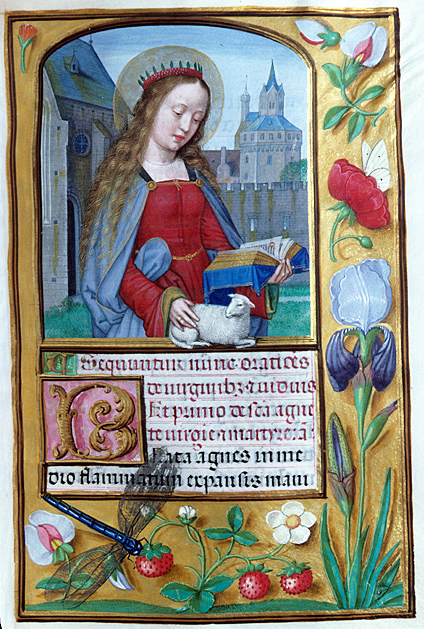 Sequuntur nunc oratiões
de virginibꝫ ⁊ viduis
Et primo de sca agne
te virgie ⁊ martyre añ
Beata agnes in me
dio flammarum expansis mani